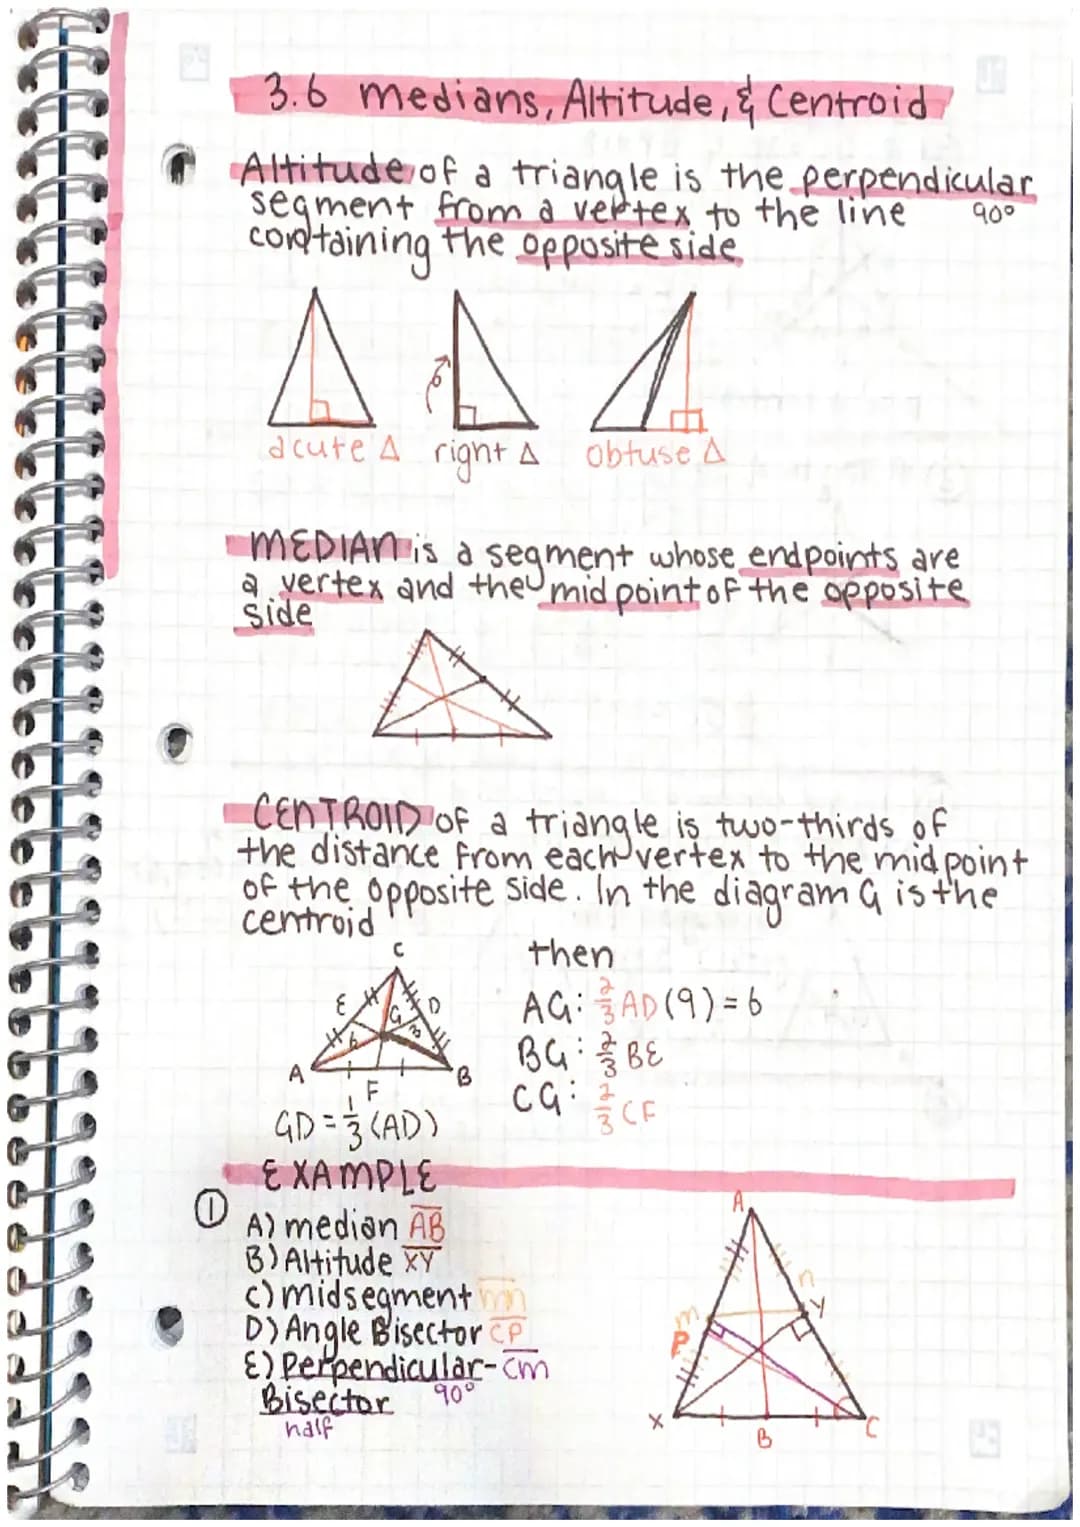 3.6 medians, Altitude, & Centroid
Altitude of a triangle is the perpendicular
segment from a vertex to the line 90°
containing the opposite side
acute Δ right Δ obtuse Δ
MEDIAN is a segment whose endpoints are
a vertex and the midpoint of the opposite
side
CENTROID of a triangle is two-thirds of
the distance from each vertex to the midpoint
of the opposite side. In the diagram G is the
centroid
then
C
E G D
6 3
A F B
AG: 2/3 AD (9) = 6
BG: 2/3 BE
CG: 2/3 CF
GD = 1/3 (AD)
EXAMPLE
① A) median AB
B) Altitude XY
C) midsegment mn
D) Angle Bisector CP
E) Perpendicular- Cm
Bisector 90°
half
A
n
m Y
P
X B C